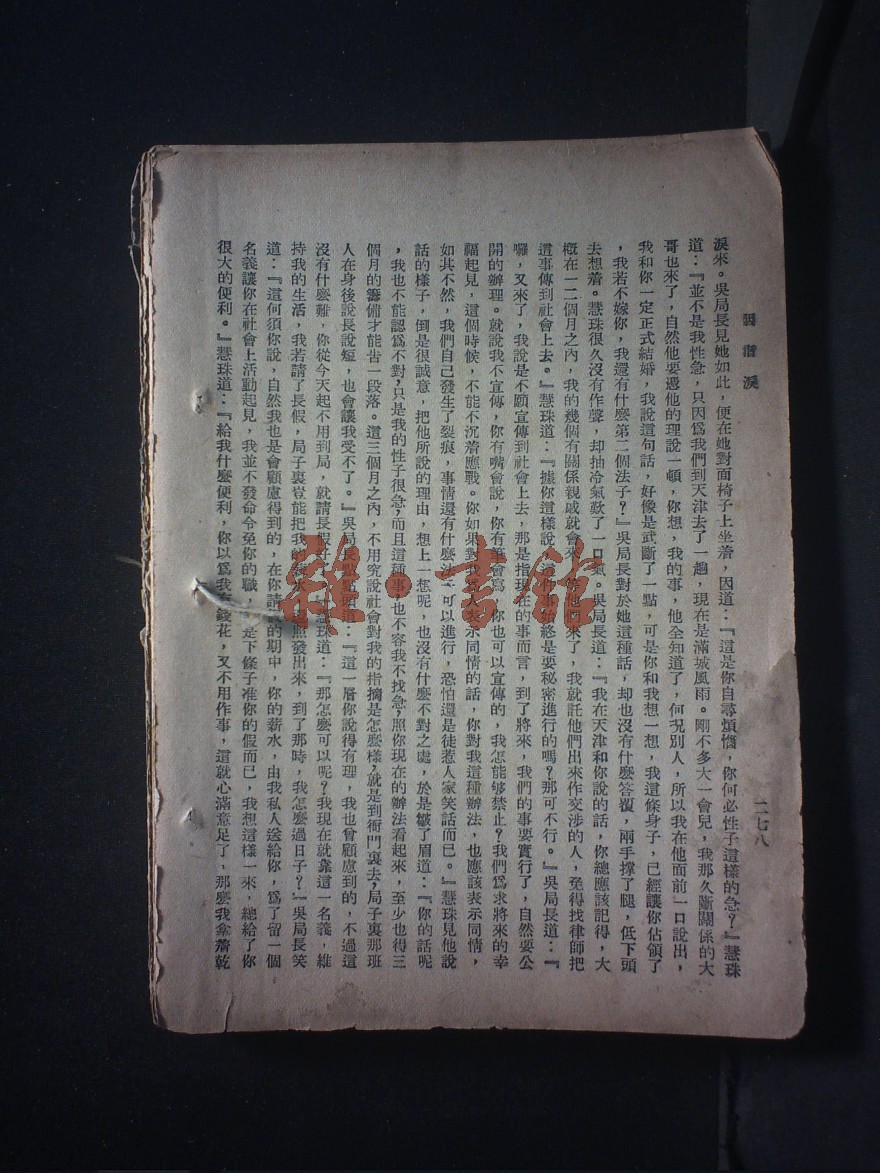 淚
二七八
淚來。吳局長見她如此，便在她對面椅子上坐着，因道：『這是你自尋煩惱，你何必性子這樣的急？』慧珠
道：『並不是我性急，只因爲我們到天津去了一趟，現在是滿城風雨。剛不多大一會兒，我那久斷關係的大
哥也來了，自然他要憑他的理說一頓，你想，我的事，他全知道了，何况別人，所以我在他面前一口說出，
我和你一定正式結婚，我說這句話，好像是武斷了一點，可是你和我想一想，我這條身子，已經讓你佔領了
，我若不嫁你，我還有什麼第二個法子？』吳局長對於她這種話，却也沒有什麼答覆，兩手撐了腿，低下頭
去想着。慧珠很久沒有作聲，却抽冷氣歎了一口氣。吳局長道：『我在天津和你說的話，你總應該記得，大
概在一二個月之內，我的幾個有關係親戚就會來，等他們來了，我就託他們出來作交涉的人，免得找律師把
這事傳到社會上去。』慧珠道：『據你這樣說，這件事始終是要秘密進行的嗎？那可不行。』吳局長道：『
囉，又來了，我說是不願宣傳到社會上去，那是指現在的事而言，到了將來，我們的事要實行了，自然要公
開的辦理。就說我不宣傳，你有嘴會說，你有筆會寫，你也可以宣傳的，我怎能够禁止？我們爲求將來的幸
福起見，這個時候，不能不沉着應戰。你如果對我爲人表示同情的話，你對我這種辦法，也應該表示同情，
如其不然，我們自己發生了裂痕，事情還有什麼法子可以進行，恐怕還是徒惹人家笑話而已。』慧珠見他說
話的樣子，倒是很誠意，把他所說的理由，想上一想呢，也沒有什麼不對之處，於是皺了眉道：『你的話呢
，我也不能認爲不對，只是我的性子很急，而且這種事，也不容我不找急，照你現在的辦法看起來，至少也得三
個月的籌備才能告一段落。這三個月之內，不用究說社會對我的指摘是怎麼樣，就是到衙門裏去，局子裏那班
人在身後說長說短，也會讓我受不了。』吳局長點點頭道：『這一層你說得有理，我也曾顧慮到的，不過這
沒有什麼難，你從今天起不用到局，就請長假好了。』慧珠道：『那怎麼可以呢？我現在就靠這一名義，維
持我的生活，我若請了長假，局子裏豈能把我的薪水，照發出來，到了那時，我怎麼過日子？』吳局長笑
道：『這何須你說，自然我也是會顧慮得到的，在你請假的期中，你的薪水，由我私人送給你，爲了留一個
名義讓你在社會上活動起見，我並不發命令免你的職，是下條子准你的假而已，我想這樣一來，總給了你
很大的便利。』慧珠道：『給我什麼便利，你以爲我有錢花，又不用作事，這就心滿意足了，那麼我拿着乾
雜·書館